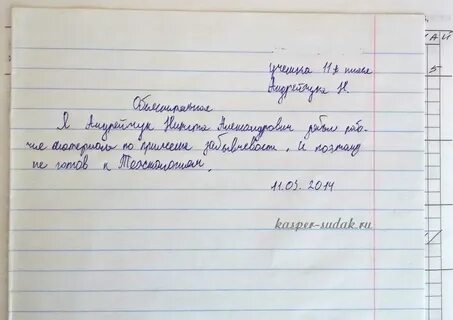 ученика 11 класса
Андрейчука Н.
Объяснительная
Я Андрейчук Никита Александрович забыл рабо-
чие материалы по причине забывчевости. И поэтому
не готов к Технологиям.
11.05.2014
kasper-sudak.ru
А Й
5